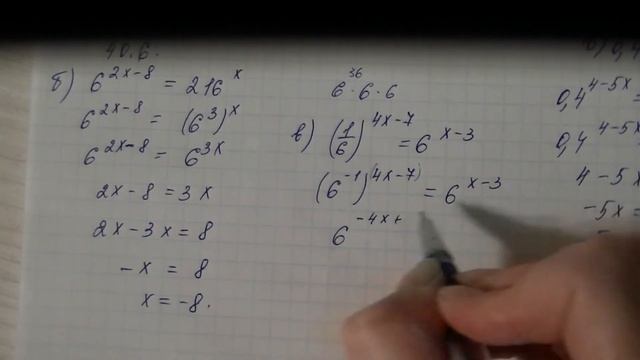 40.6.
б) 6^(2x-8) = 216^x
6^(2x-8) = (6^3)^x
6^(2x-8) = 6^(3x)
2x-8 = 3x
2x-3x = 8
-x = 8
x = -8.
36
6·6·6
в) (1/6)^(4x-7) = 6^(x-3)
(6^(-1))^(4x-7) = 6^(x-3)
6^(-4x+
0,4^(4-5x)
0,4^(4-5x)
4-5x
-5x=